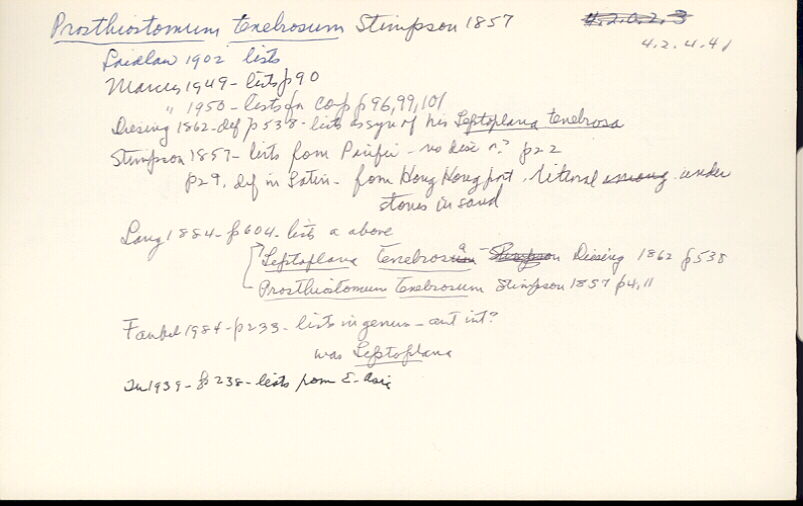 Prosthiostomum tenebrosum Stimpson 1857
4.2.0.2.3
4.2.4.41
Laidlaw 1902 lists
Marcus 1949 - lists p90
" 1950 - lists for comp p96,99,101
Diesing 1862 - def p538 - lists as syn of his Leptoplana tenebrosa
Stimpson 1857 - lists from Pacific - no desc n.? p22
p29, def in Latin - from Hong Kong port, litoral among under
stones in sand
Lang 1884 - p604 - lists a above
Leptoplana tenebrosa - Stimpson Diesing 1862 p538
Prosthiostomum tenebrosum Stimpson 1857 p4,11
Faubel 1984 - p233 - lists in genus - ant int?
was Leptoplana
Tu 1939 - p238 - lists from E. Asia